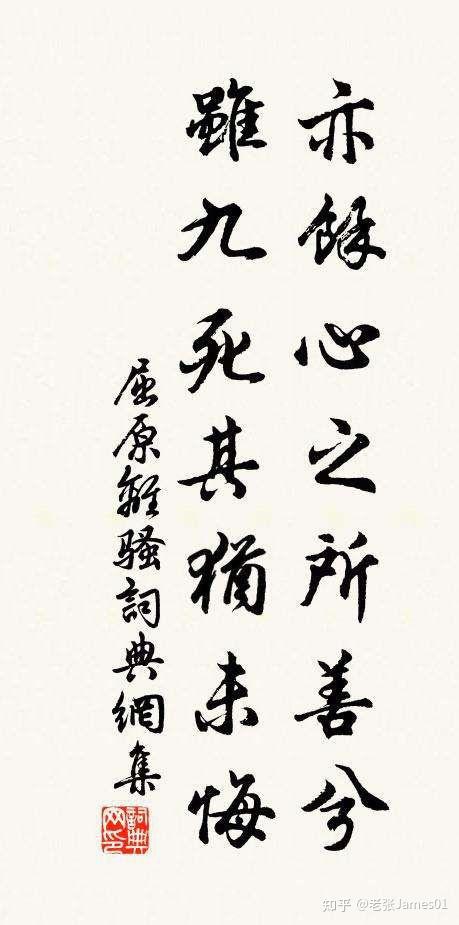 亦餘心之所善兮
雖九死其猶未悔
屈原離騷詞典網集
詞典
网印
知乎 @老张James01